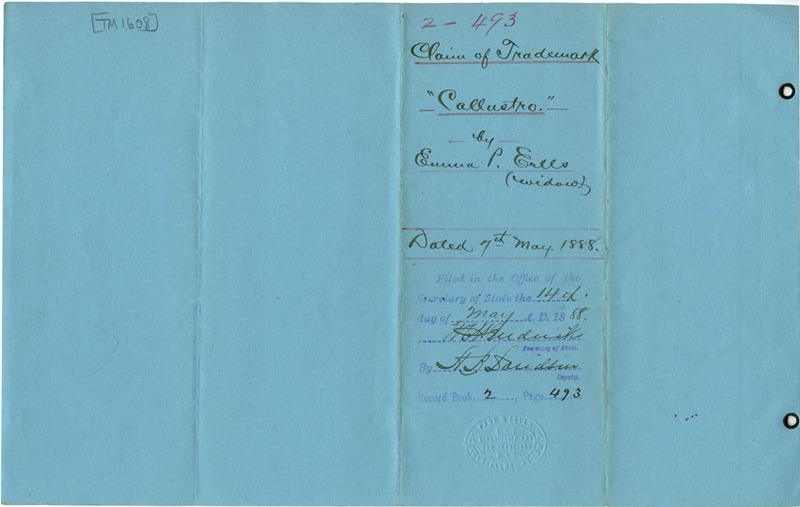 [TM 1608]
2 - 493
Claim of Trademark
"Callustro."
- by -
Emma P. Eells
(widow)
Dated 7th May. 1888.
Filed in the Office of the
Secretary of State the 14th.
day of May A. D. 1888.
Secretary of State.
By
Deputy.
Record Book 2, Page 493